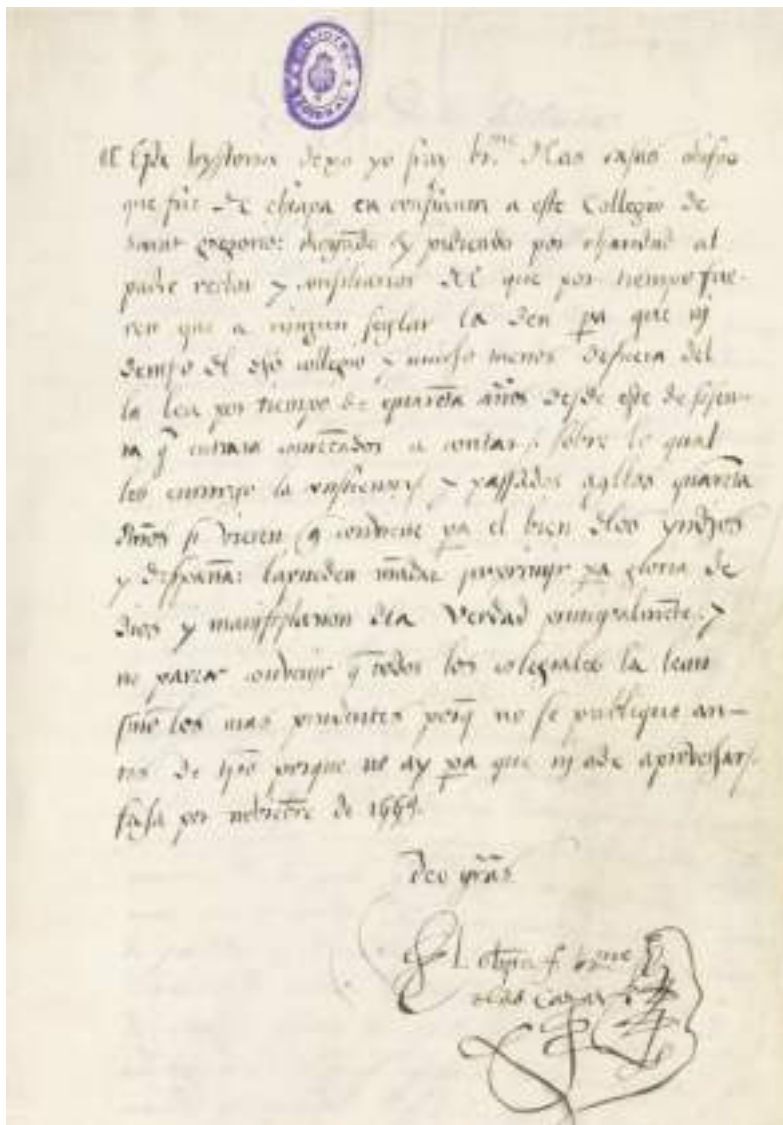 BIBLIOTECA
Esta hystoria dexo yo fray br.me dlas casas obispo
que fue de chiapa en confiança a este collegio de
sant gregorio: rogando y pidiendo por charidad al
padre rector y consiliarios dl que por tiempo fue-
ren que a ningun seglar la den pa que nj
dentro dl dho collegio y mucho menos defuera del
la lea por tiempo de quarēta años desde este de sesen-
ta q̄ entrara começados a contar, sobre lo qual
les encargo la consciençia y passados aqllos quarēta
años si vieren q̄ conviene pa el bien dlos yndios
y despaña: la pueden mādar ymprimjr pa gloria de
dios y manifestacion dla verdad principalmēte. y
no parece convenjr q̄ todos los colegiales la lean
sino los mas prudentes porq̄ no se publique an-
tes de tpō porque no ay pa que nj a de aprovechar.
fecha por noviēbre de 1559.
deo grās
El obispo f. br.me
dlas casas